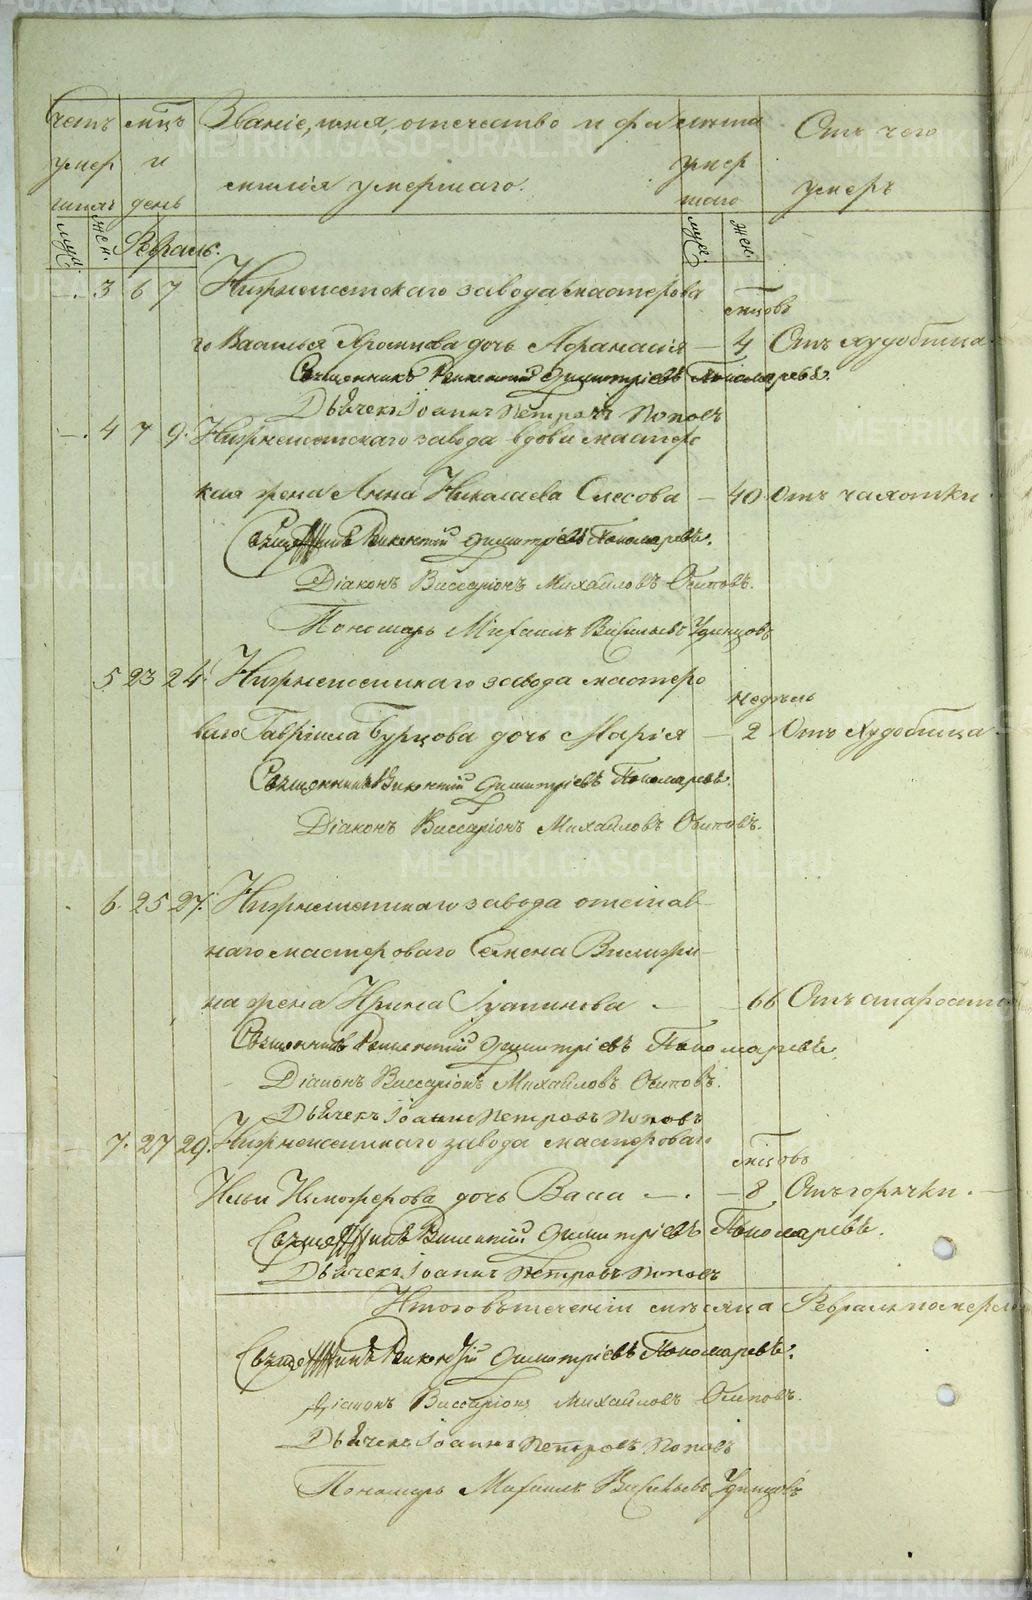 Счетъ мцъ Званіе, имя, отечество и фа лѣта Отъ чего
умер и милія умершаго. умер умеръ
шихъ день шаго
муж. жен. Февраль. муж. жен.
3 6 7 Нижнеисетскаго завода мастерова
мцовъ
го Василья дочь Афанасія — 4 Отъ худобища.
Священникъ Викентий Димитріевъ Пономаревъ.
Дьячекъ Іоаннъ Петровъ Поповъ
4 7 9. Нижнеисетскаго завода вдова мастерс
кая жена Анна Николаева — 40 Отъ чахотки.
Священникъ Викентий Димитріевъ Пономаревъ.
Діаконъ Виссаріонъ Михайловъ Осиповъ.
Пономарь Михаилъ Васильевъ Удинцовъ
5 23 24. Нижнеисетскаго завода мастеро
недѣль
ваго Гавріила Бурцова дочь Марія — 2 Отъ худобища
Священникъ Викентий Димитріевъ Пономаревъ.
Діаконъ Виссаріонъ Михайловъ Осиповъ.
6. 25 27. Нижнеисетскаго завода отстав
наго мастероваго Семена
на жена Ирина — 66 Отъ старости
Священникъ Викентий Димитріевъ Пономаревъ.
Діаконъ Виссаріонъ Михайловъ Осиповъ.
Дьячекъ Іоаннъ Петровъ Поповъ
7. 27 29. Нижнеисетскаго завода мастероваго
мцовъ
Ильи дочь Васса — 8 Отъ горячки. —
Священникъ Викентий Димитріевъ Пономаревъ.
Дьячекъ Іоаннъ Петровъ Поповъ
Итого въ теченіи мѣсяца Февраля померло
Священникъ Викентий Димитріевъ Пономаревъ.
Діаконъ Виссаріонъ Михайловъ Осиповъ.
Дьячекъ Іоаннъ Петровъ Поповъ
Пономарь Михаилъ Васильевъ Удинцовъ